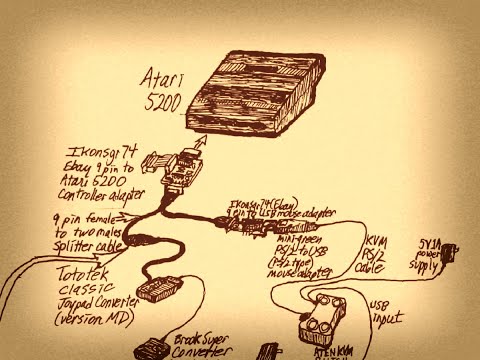 Atari
5200
Ikonsgr74
Ebay 9 pin to
Atari 5200
Controller adapter
9 pin female
to two males
splitter cable
Tototek
classic
Joypad Converter
(version MD)
Ikonsgr74(Ebay)
9 pin to USB mouse adapter
mini-green
PS/2 to USB
(PS/2 type)
mouse adapter
KVM
PS/2
Cable
5V 1A
power
supply
USB
input
Brook Super
Converter
ATEN KVM